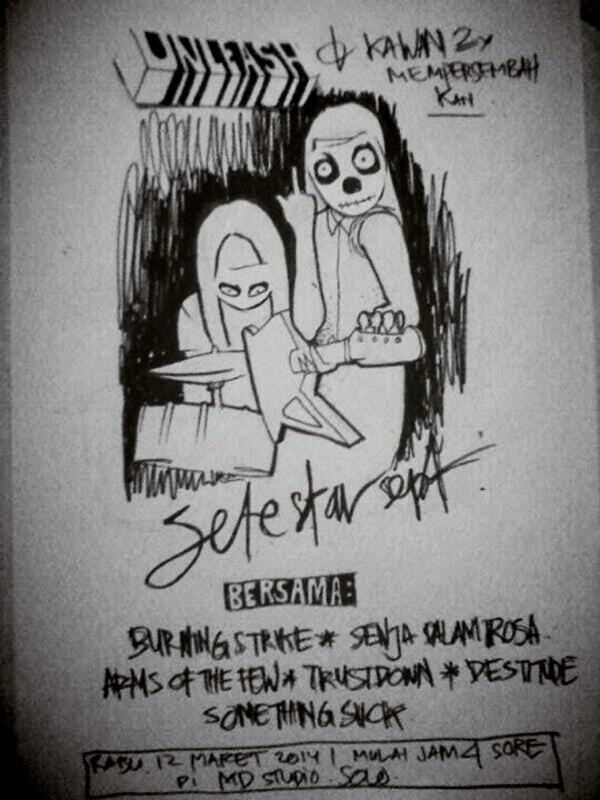 UNLEASH & KAWAN 2x
MEMPERSEMBAH
KAN
Sete star sept
BERSAMA:
BURNING STRIKE * SENJA DALAM ROSA
ARMS OF THE FEW * TRUSTDOWN * DESTITUDE
SOMETHING SUCK
RABU 12 MARET 2014 | MULAI JAM 4 SORE
DI MD STUDIO. SOLO.